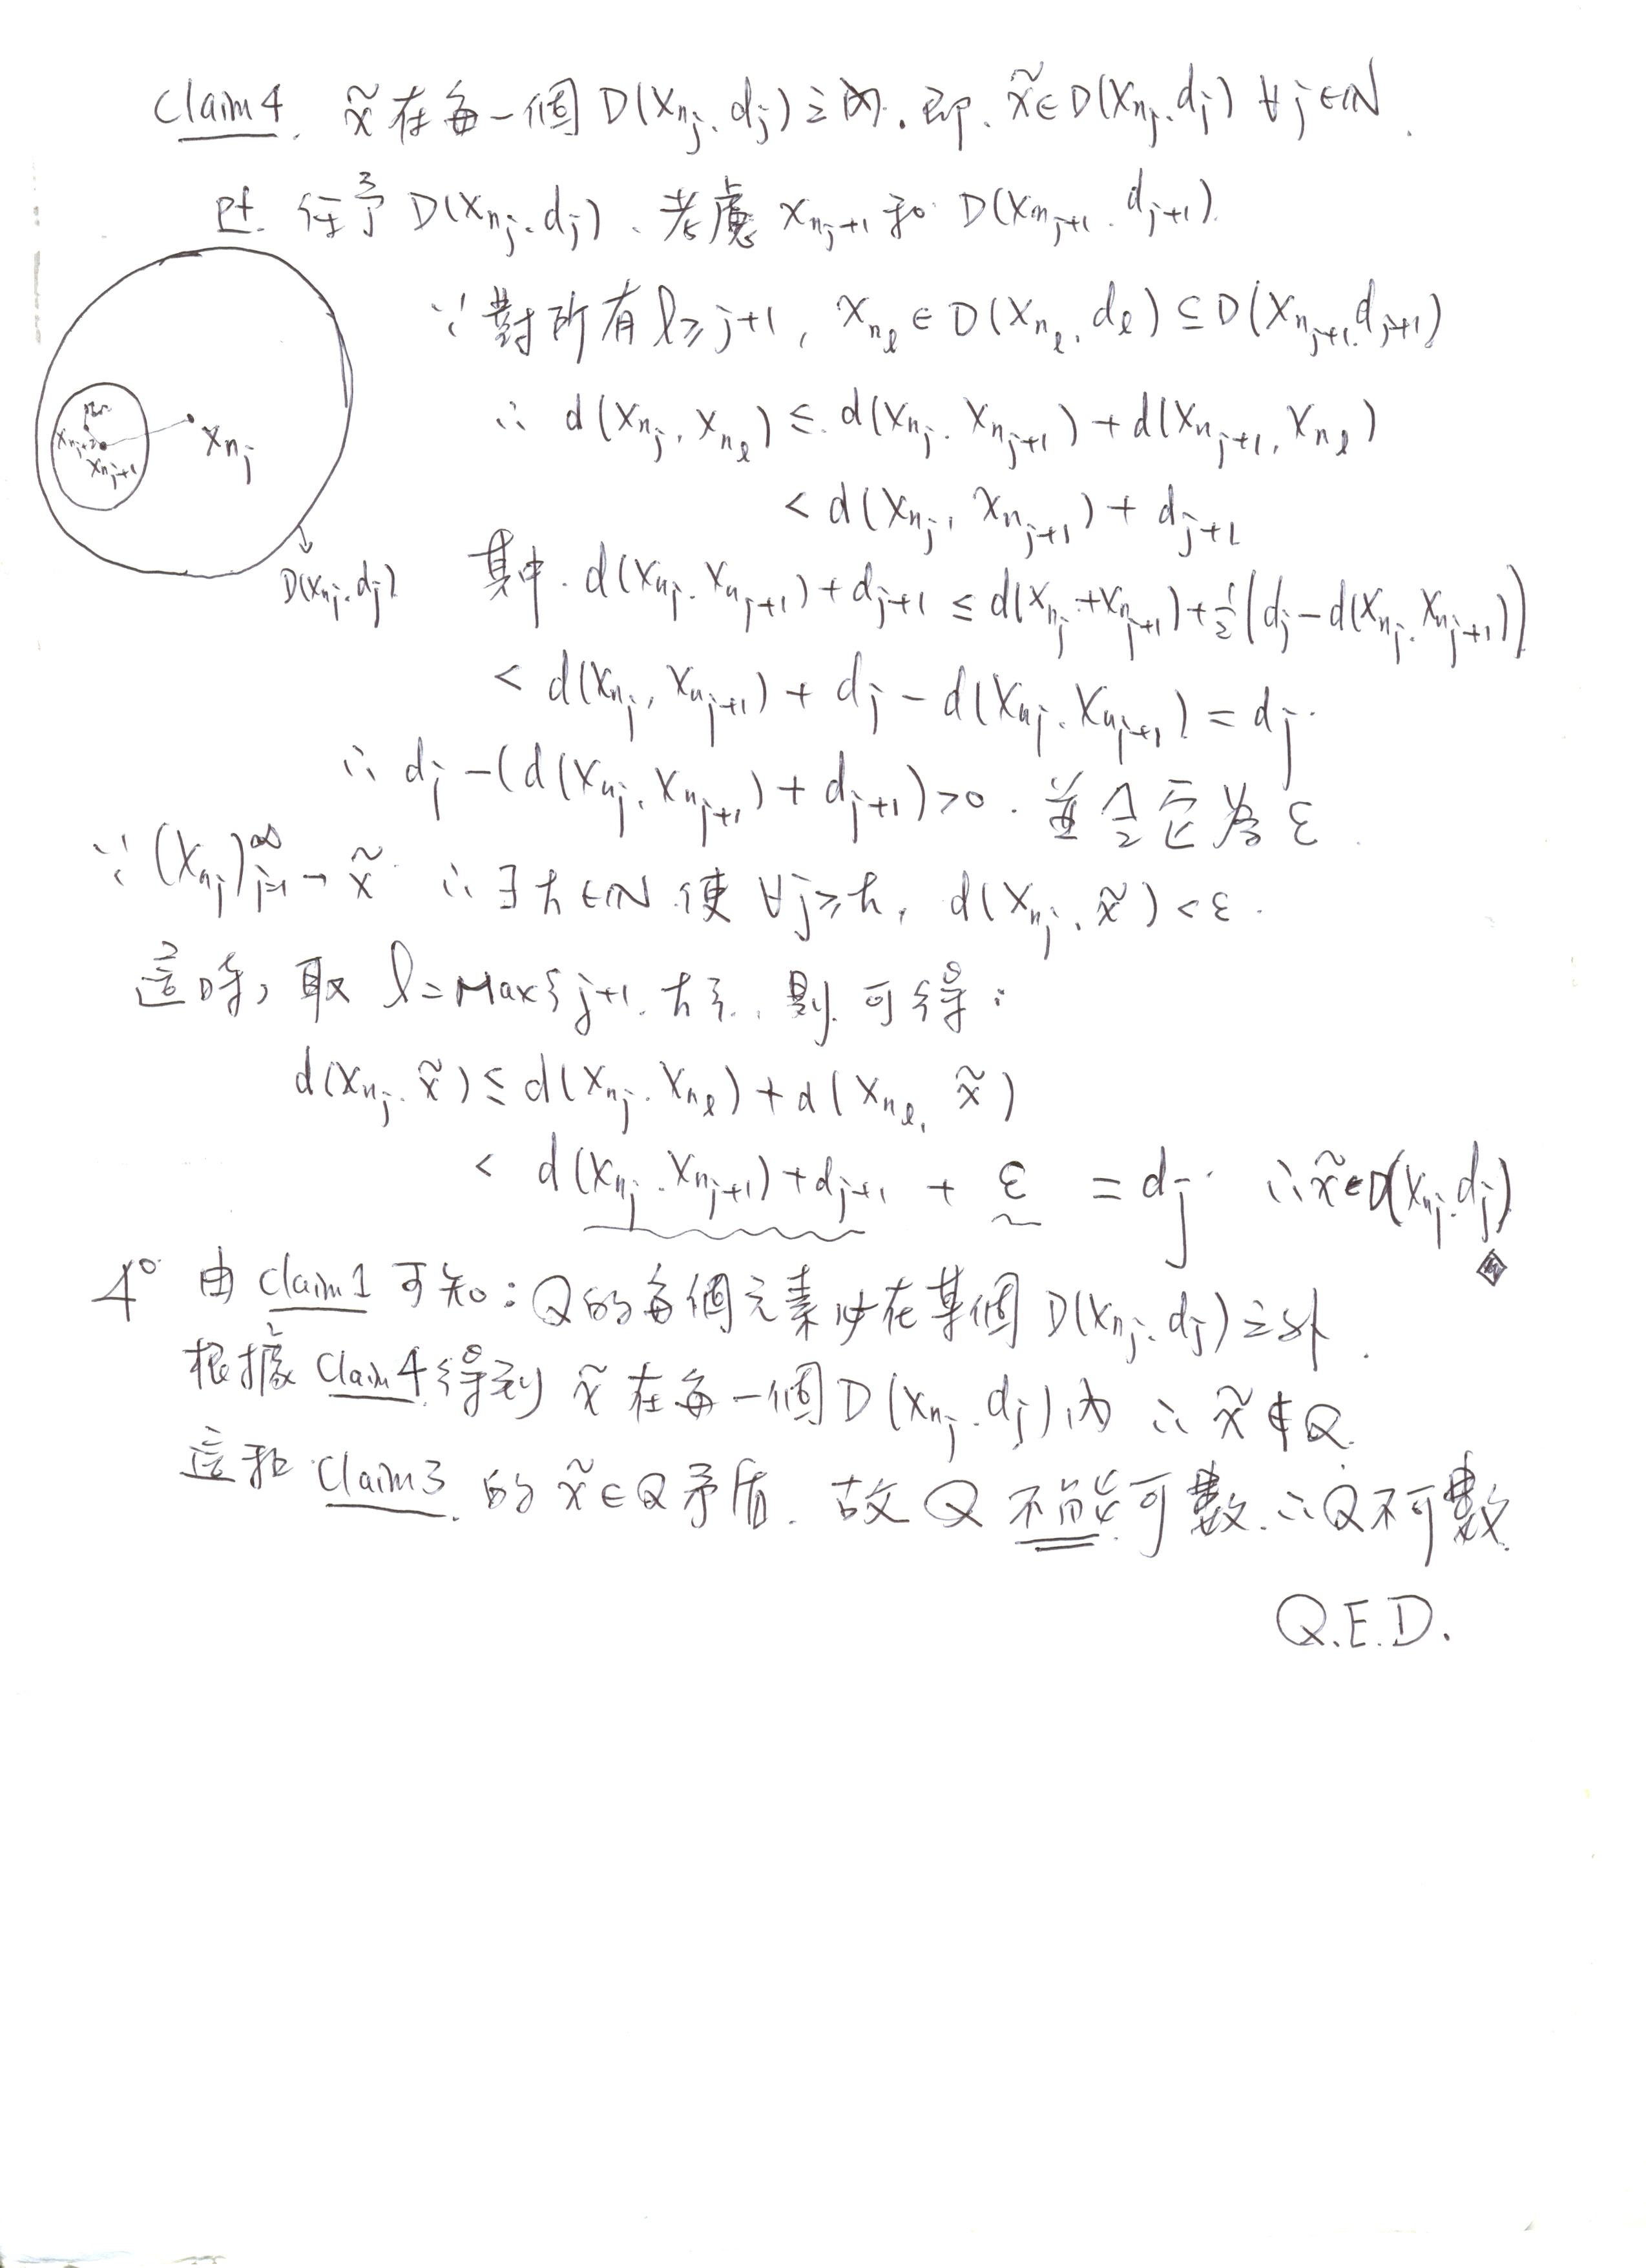 Claim 4. x̃ 在每一個 D(x_{n_j}, d_j) 之內. 即. x̃ ∈ D(x_{n_j}, d_j) ∀ j ∈ ℕ.
pf. 任予 D(x_{n_j}, d_j). 考慮 x_{n_{j+1}} 和 D(x_{n_{j+1}}, d_{j+1}).
∵ 對所有 l ≥ j+1, x_{n_l} ∈ D(x_{n_l}, d_l) ⊆ D(x_{n_{j+1}}, d_{j+1})
∴ d(x_{n_j}, x_{n_l}) ≤ d(x_{n_j}, x_{n_{j+1}}) + d(x_{n_{j+1}}, x_{n_l})
< d(x_{n_j}, x_{n_{j+1}}) + d_{j+1}
x_{n_{j+2}}
x_{n_{j+1}}
x_{n_j}
D(x_{n_j}, d_j)
其中. d(x_{n_j}, x_{n_{j+1}}) + d_{j+1} ≤ d(x_{n_j} + x_{n_{j+1}}) + 1/2 (d_j − d(x_{n_j}, x_{n_{j+1}}))
< d(x_{n_j}, x_{n_{j+1}}) + d_j − d(x_{n_j}, x_{n_{j+1}}) = d_j.
∴ d_j − (d(x_{n_j}, x_{n_{j+1}}) + d_{j+1}) > 0. 並令它為 ε.
∵ (x_{n_j})_{j=1}^∞ → x̃ ∴ ∃ k ∈ ℕ 使 ∀ j ≥ k, d(x_{n_j}, x̃) < ε.
這時, 取 l = Max{j+1, k}, 則可得:
d(x_{n_j}, x̃) ≤ d(x_{n_j}, x_{n_l}) + d(x_{n_l}, x̃)
< d(x_{n_j}, x_{n_{j+1}}) + d_{j+1} + ε = d_j. ∴ x̃ ∈ D(x_{n_j}, d_j)
4° 由 Claim 1 可知: Q 的每個元素必在某個 D(x_{n_j}, d_j) 之外.
根據 Claim 4. 得到 x̃ 在每一個 D(x_{n_j}, d_j) 內 ∴ x̃ ∉ Q.
這和 Claim 3. 的 x̃ ∈ Q 矛盾. 故 Q 不能可數. ∴ Q 不可數.
Q.E.D.